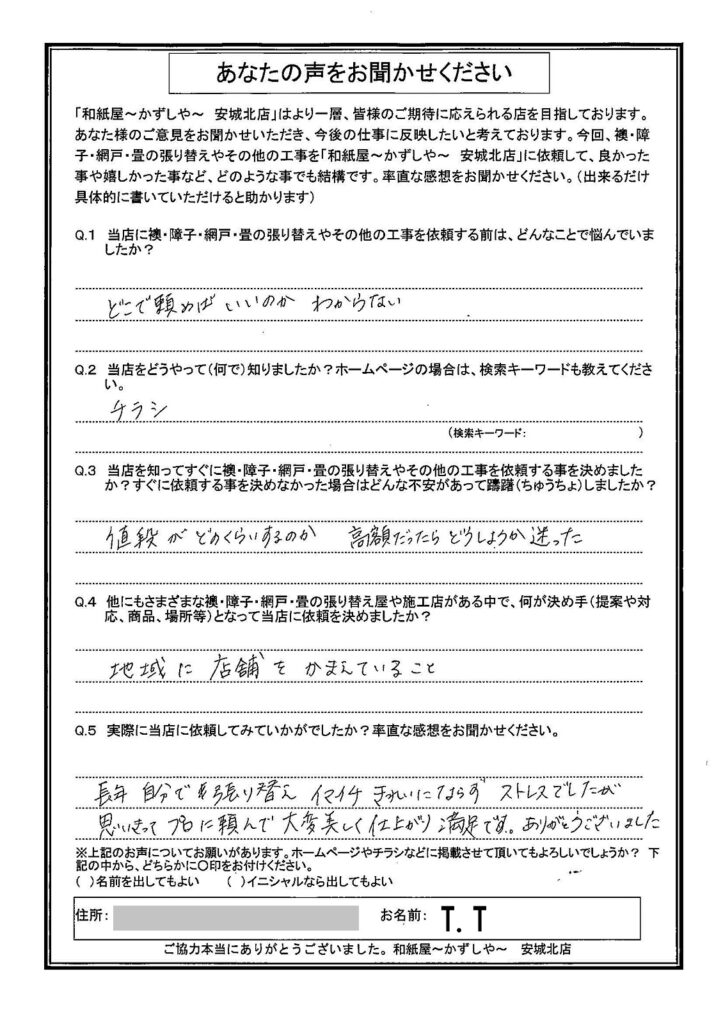 あなたの声をお聞かせください
「和紙屋～かずしや～　安城北店」はより一層、皆様のご期待に応えられる店を目指しております。
あなた様のご意見をお聞かせいただき、今後の仕事に反映したいと考えております。今回、襖・障
子・網戸・畳の張り替えやその他の工事を「和紙屋～かずしや～　安城北店」に依頼して、良かった
事や嬉しかった事など、どのような事でも結構です。率直な感想をお聞かせください。（出来るだけ
具体的に書いていただけると助かります）
Q.1　当店に襖・障子・網戸・畳の張り替えやその他の工事を依頼する前は、どんなことで悩んでいま
したか？
どこで頼めば いいのか わからない
Q.2　当店をどうやって（何で）知りましたか？ホームページの場合は、検索キーワードも教えてくださ
い。
チラシ
（検索キーワード：　　　　　　　　　）
Q.3　当店を知ってすぐに襖・障子・網戸・畳の張り替えやその他の工事を依頼する事を決めました
か？すぐに依頼する事を決めなかった場合はどんな不安があって躊躇（ちゅうちょ）しましたか？
値段が どのくらいするのか 高額だったら どうしようか 迷った
Q.4　他にもさまざまな襖・障子・網戸・畳の張り替え屋や施工店がある中で、何が決め手（提案や対
応、商品、場所等）となって当店に依頼を決めましたか？
地域に 店舗を かまえていること
Q.5　実際に当店に依頼してみていかがでしたか？率直な感想をお聞かせください。
長年 自分で 張り替え イマイチ きれいにならず ストレスでしたが
思いきって プロに頼んで 大変美しく仕上がり 満足です。ありがとうございました
※上記のお声についてお願いがあります。ホームページやチラシなどに掲載させて頂いてもよろしいでしょうか？　下
記の中から、どちらかに〇印をお付けください。
（　）名前を出してもよい　　（　）イニシャルなら出してもよい
住所：　お名前：　T. T
ご協力本当にありがとうございました。和紙屋～かずしや～　安城北店